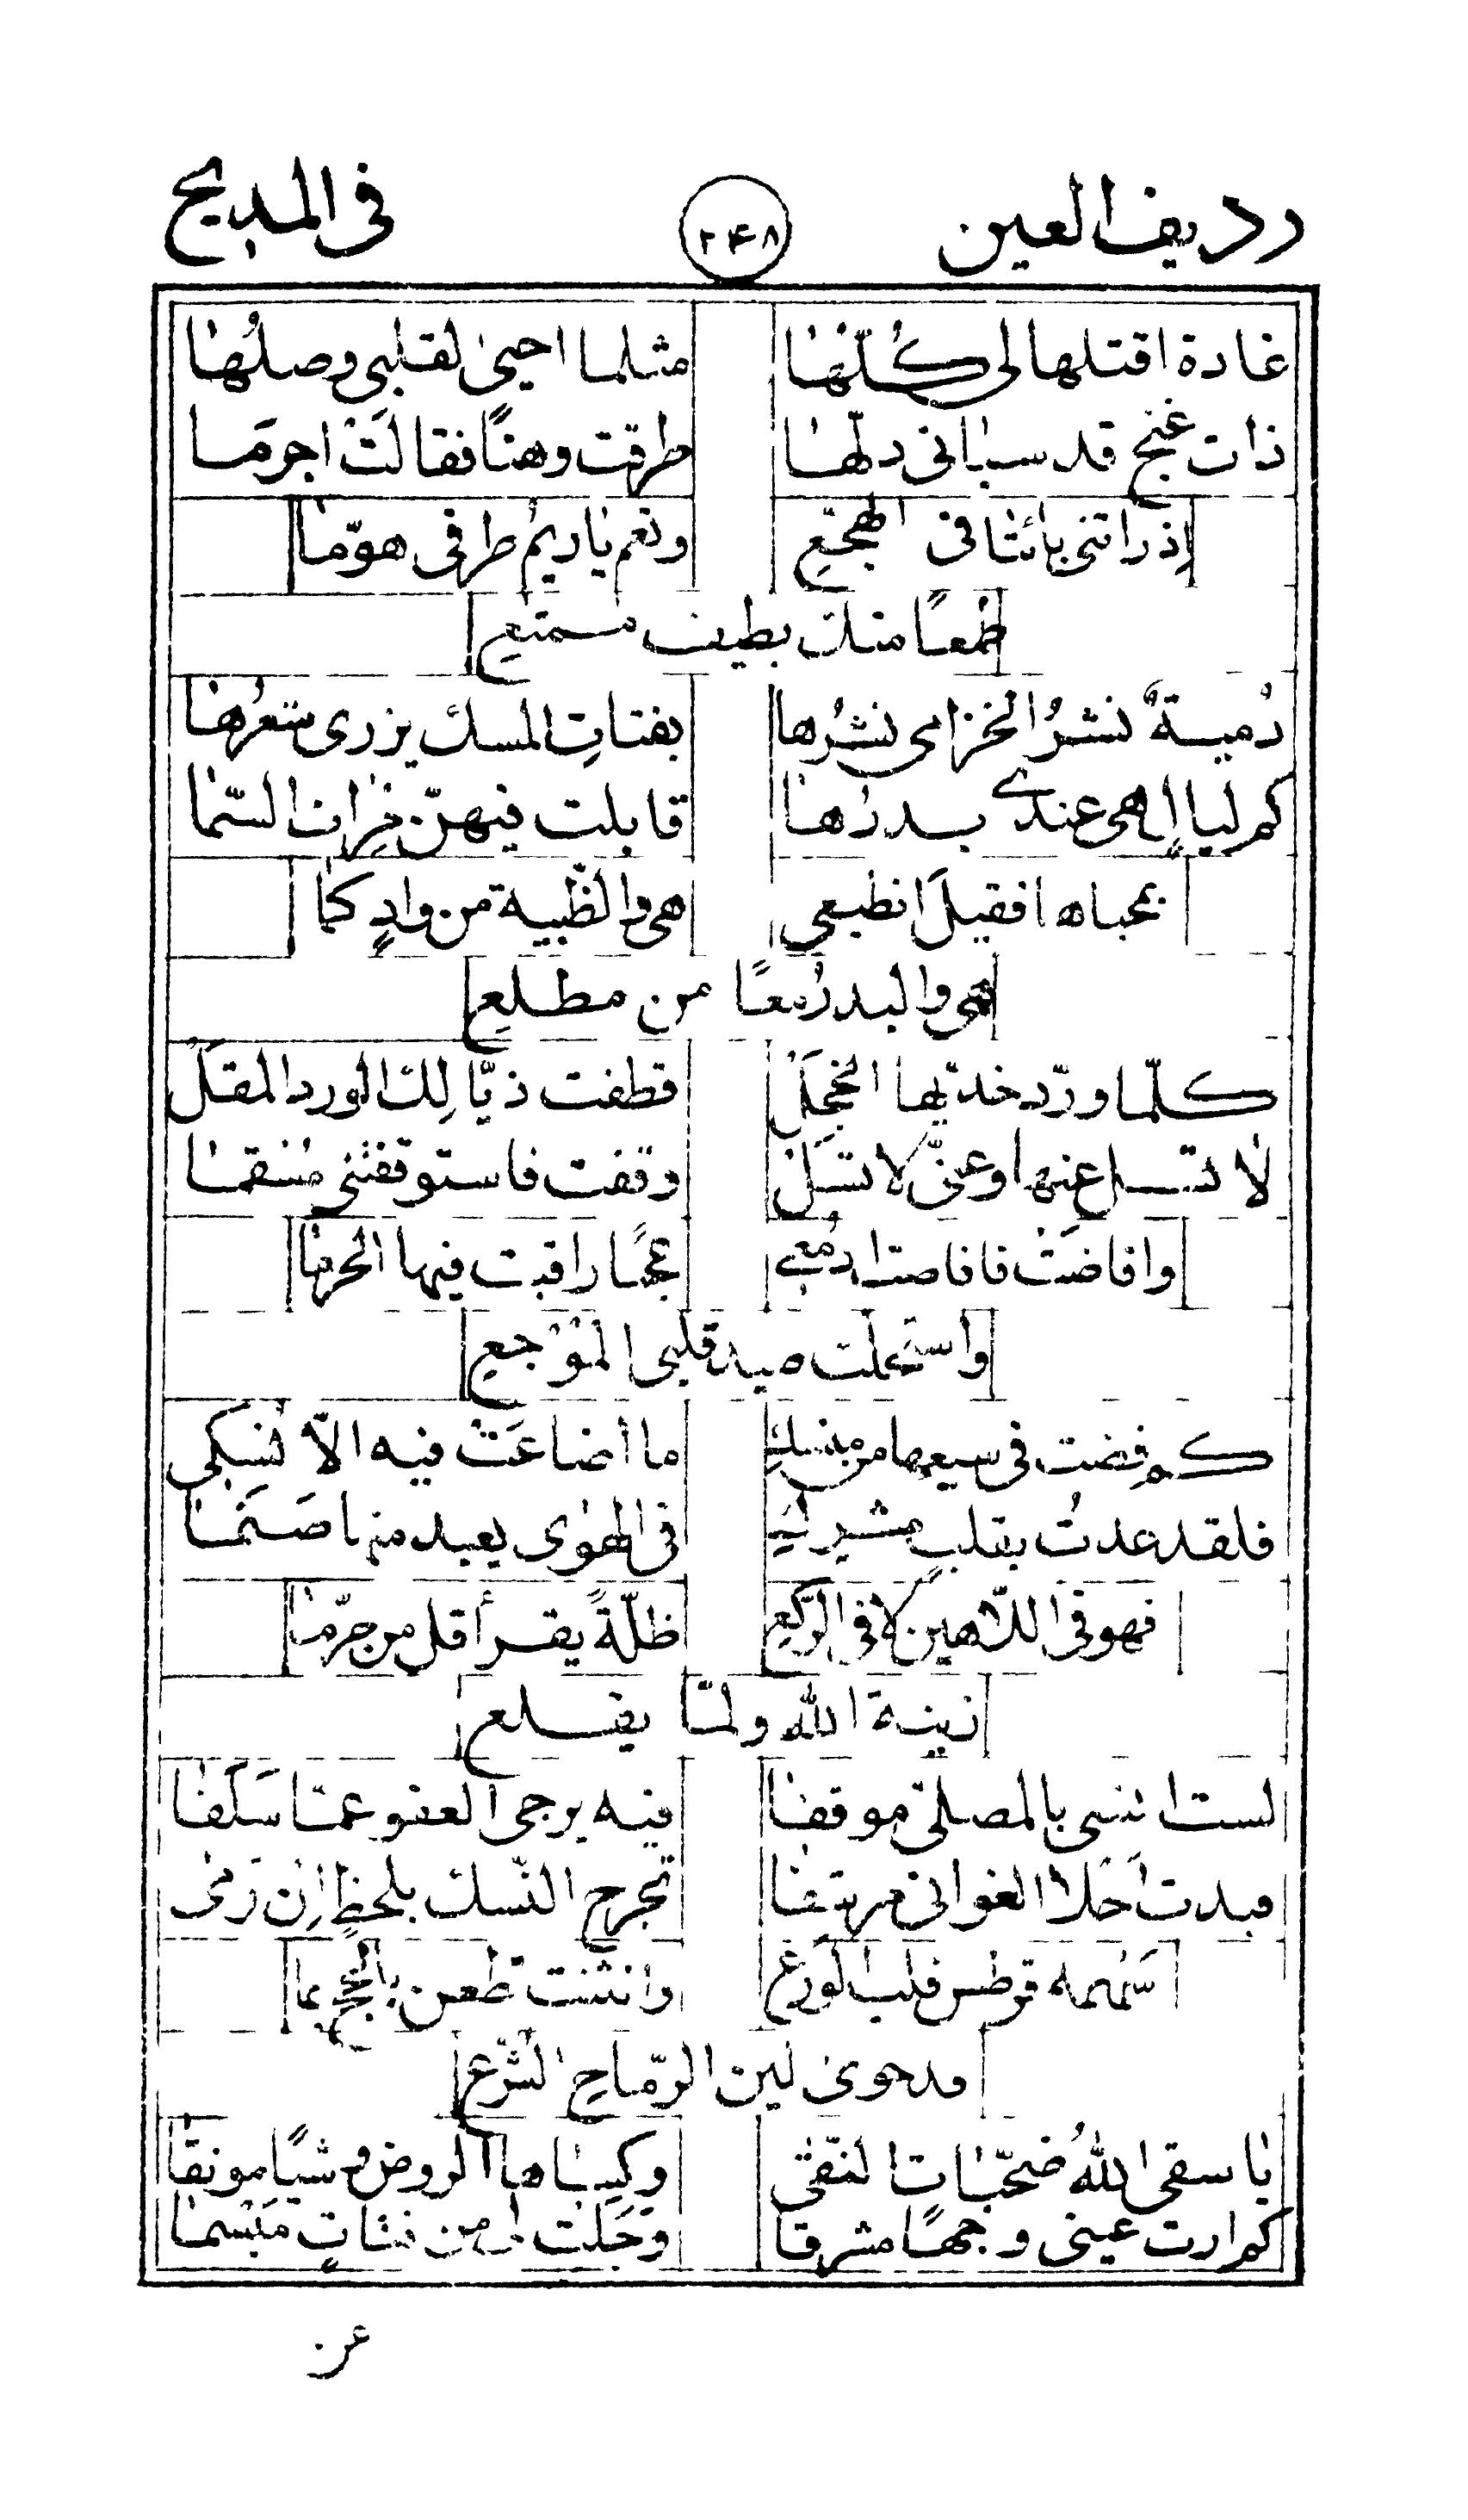 رديف العين ٢٤٨ في المديح
غادة اقتلها لي كُلّهٰا مثلما احيىٰ لقلبي وصلُهٰا
ذات غنج قد سبٰاني دلّهٰا طرقت وهنًا فقالَتْ اجرمَا
إذ رأتني بائتًا في الهجّعِ ونعم يٰا ريمُ طرفي هوّمٰا
طمعًا منك بطيف ممتعِ
دُميةٌ نشرُ الخزامى نشرُها بفتاتِ المسك يزرى شعرُهٰا
كم ليالٍ هي عندي بدرُهٰا قابلت فيهنّ مِرآت السّمٰا
بمحياها فقيلَ انطبعي هي والظّبية من وادٍ كمٰا
هي والبدرُ معًا من مطلعِ
كلّما ورّد خدّيها الخجَلْ قطفت ذيّالِك الورد المقَلْ
لٰا تسل عنها وعنّي لا تسَلْ وقفت فاستوقفتني مُنقمٰا
وافاضَتْ فافاضت ادمُعي عجبًا راقبت فيها الحرمٰا
واستحلّت صيد قلبي المُوْجعِ
كم قضت في سعيها من منسكِ ما أضاعَتْ فيه الّا نُسكي
فلقد عدتُ بقلبٍ مشركِ في الهوىٰ يعبد منها صَنَمٰا
فهو في اللّاهين لا في الرّكّعِ ظلّةً يقرأ قل من حرّمٰا
زينة الله ولمّا يقلع
لستُ انسى بالمصلّىٰ موقفٰا فيه يرجى العفو عمّا سَلَفٰا
فبدت احَلا الغواني مرشفٰا تجرح النّسك بلحظٍ اِن رَمٰى
سَهمه قرطس قلب الورَعِ وانثنت تطعن بالحجّ بما
قد حوى لين الرّماحِ الشّرّعِ
يٰا سقى اللهُ ضحيّات النّقٰى وكسٰاها الروض وشيًا مونقٰا
كم ارت عيني وجهًا مشرقٰا وَجَلَت لي من ثنيّاتٍ مَبْسمٰا
عن